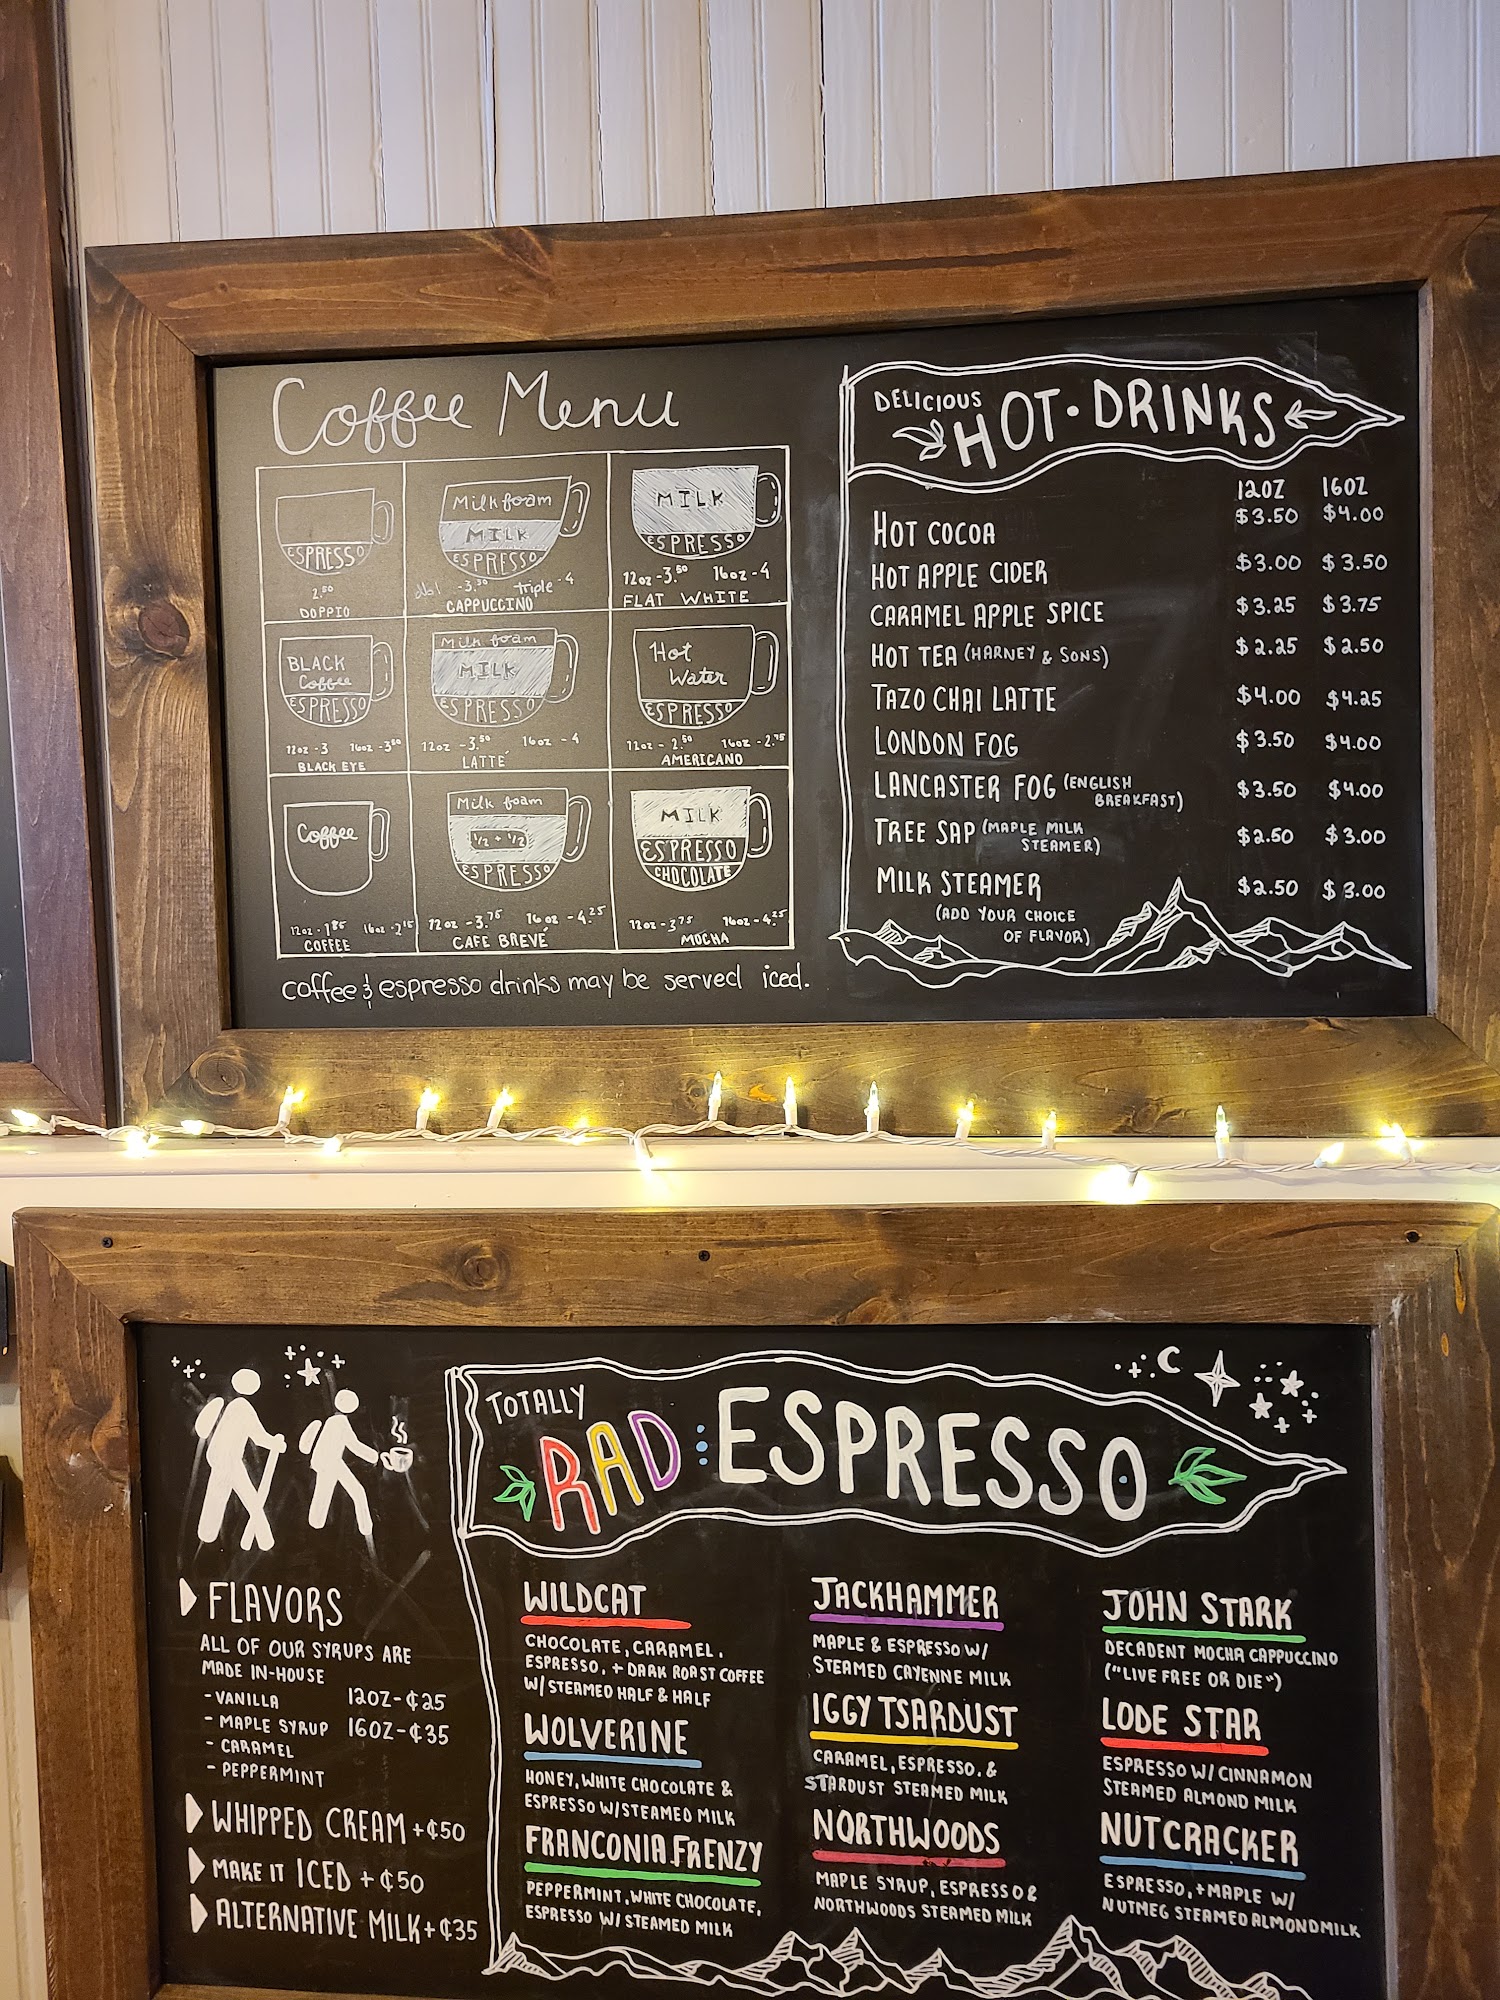 Coffee Menu
ESPRESSO
2.50
DOPPIO
Milk foam
MILK
ESPRESSO
dbl -3.50 triple-4
CAPPUCCINO
MILK
ESPRESSO
12oz-3.50 16oz-4
FLAT WHITE
BLACK
Coffee
ESPRESSO
12oz-3 16oz-3.50
BLACK EYE
Milk foam
MILK
ESPRESSO
12oz -3.50 16oz -4
LATTÉ
Hot
Water
ESPRESSO
12oz - 2.50 16oz -2.75
AMERICANO
Coffee
12oz -1.85 16oz -2.15
COFFEE
Milk foam
1/2 + 1/2
ESPRESSO
12oz -3.75 16oz -4.25
CAFE BREVÉ
MILK
ESPRESSO
CHOCOLATE
12oz -3.75 16oz -4.25
MOCHA
coffee & espresso drinks may be served iced.
DELICIOUS
HOT • DRINKS
12OZ 16OZ
HOT COCOA $3.50 $4.00
HOT APPLE CIDER $3.00 $3.50
CARAMEL APPLE SPICE $3.25 $3.75
HOT TEA (HARNEY & SONS) $2.25 $2.50
TAZO CHAI LATTE $4.00 $4.25
LONDON FOG $3.50 $4.00
LANCASTER FOG (ENGLISH $3.50 $4.00
BREAKFAST)
TREE SAP (MAPLE MILK $2.50 $3.00
STEAMER)
MILK STEAMER $2.50 $3.00
(ADD YOUR CHOICE
OF FLAVOR)
TOTALLY
RAD: ESPRESSO
FLAVORS
ALL OF OUR SYRUPS ARE
MADE IN-HOUSE
- VANILLA 12OZ-¢25
- MAPLE SYRUP 16OZ-¢35
- CARAMEL
- PEPPERMINT
WHIPPED CREAM +¢50
MAKE IT ICED +¢50
ALTERNATIVE MILK +¢35
WILDCAT
CHOCOLATE, CARAMEL,
ESPRESSO, + DARK ROAST COFFEE
W/ STEAMED HALF & HALF
WOLVERINE
HONEY, WHITE CHOCOLATE &
ESPRESSO W/STEAMED MILK
FRANCONIA FRENZY
PEPPERMINT, WHITE CHOCOLATE,
ESPRESSO W/ STEAMED MILK
JACKHAMMER
MAPLE & ESPRESSO W/
STEAMED CAYENNE MILK
IGGY TSARDUST
CARAMEL, ESPRESSO, &
STARDUST STEAMED MILK
NORTHWOODS
MAPLE SYRUP, ESPRESSO &
NORTHWOODS STEAMED MILK
JOHN STARK
DECADENT MOCHA CAPPUCCINO
("LIVE FREE OR DIE")
LODE STAR
ESPRESSO W/ CINNAMON
STEAMED ALMOND MILK
NUTCRACKER
ESPRESSO, + MAPLE W/
NUTMEG STEAMED ALMOND MILK